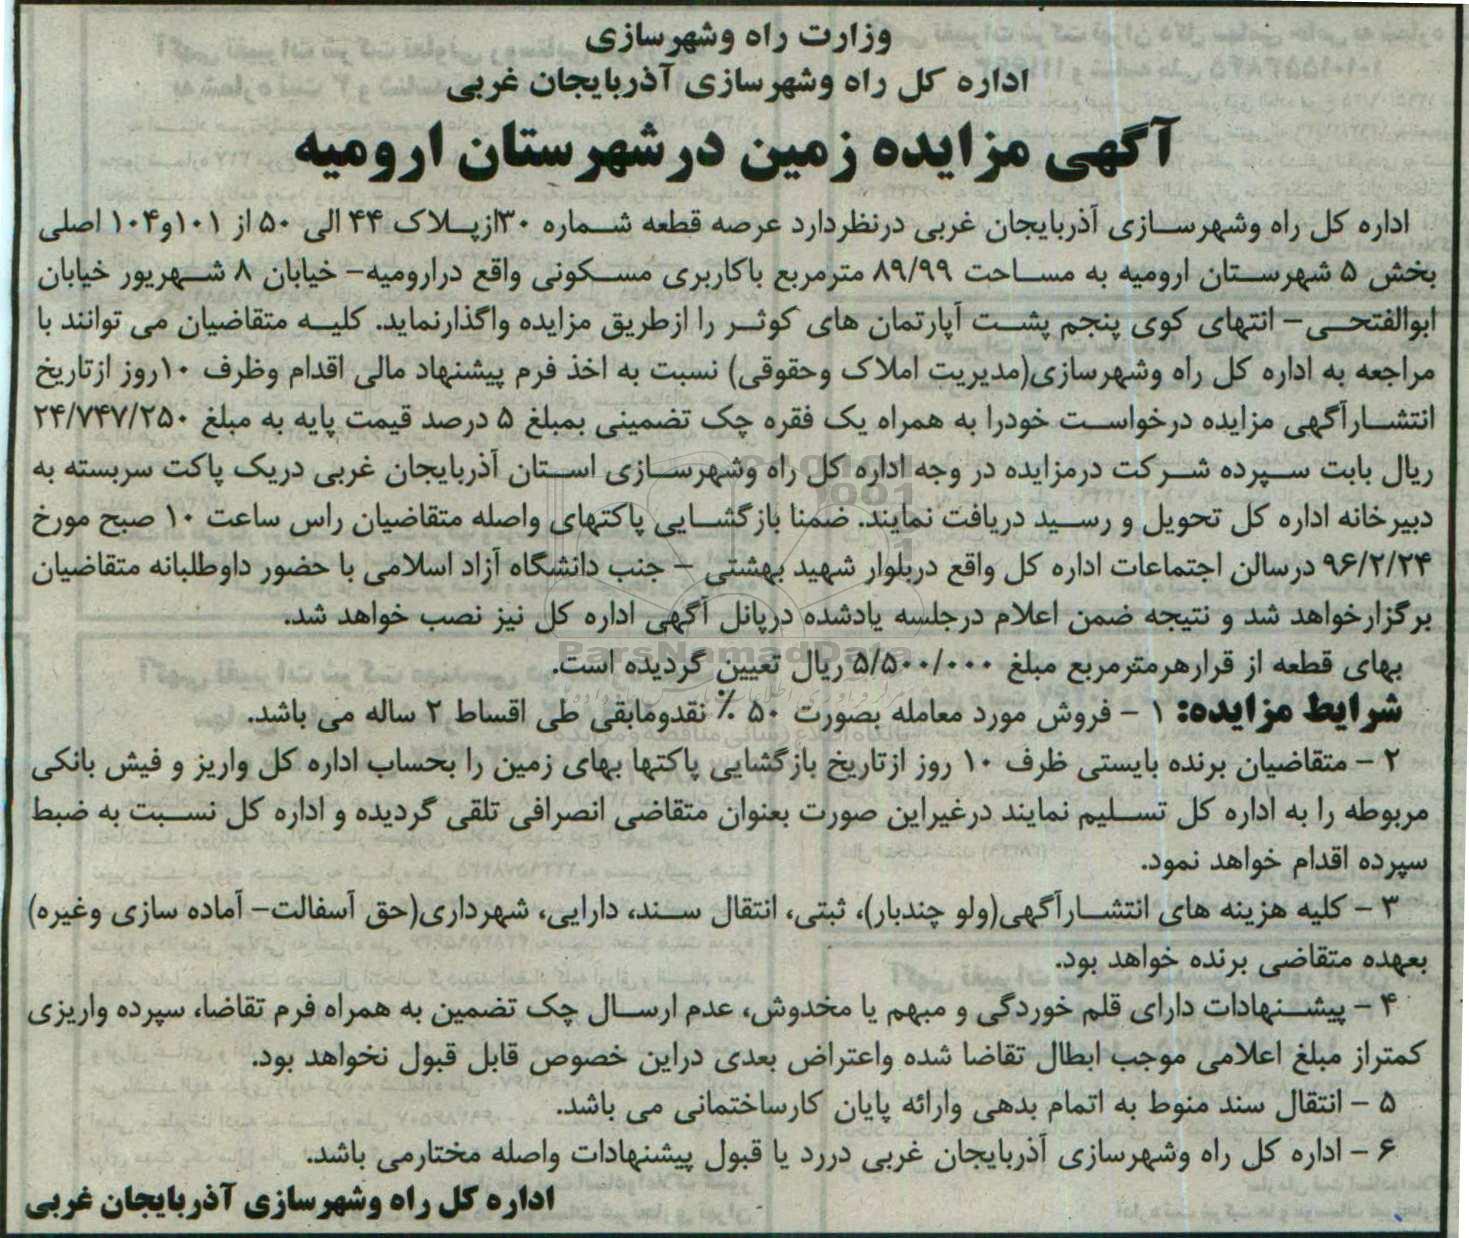 وزارت راه وشهرسازی
اداره کل راه وشهرسازی آذربایجان غربی
آگهی مزایده زمین درشهرستان ارومیه
اداره کل راه وشهرسازی آذربایجان غربی درنظردارد عرصه قطعه شماره ۳۰ازپلاک ۴۴ الی ۵۰ از ۱۰۱و۱۰۴ اصلی
بخش ۵ شهرستان ارومیه به مساحت ۸۹/۹۹ مترمربع باکاربری مسکونی واقع درارومیه- خیابان ۸ شهریور خیابان
ابوالفتحی- انتهای کوی پنجم پشت آپارتمان های کوثر را ازطریق مزایده واگذارنماید. کلیه متقاضیان می توانند با
مراجعه به اداره کل راه وشهرسازی(مدیریت املاک وحقوقی) نسبت به اخذ فرم پیشنهاد مالی اقدام وظرف ۱۰روز ازتاریخ
انتشارآگهی مزایده درخواست خودرا به همراه یک فقره چک تضمینی بمبلغ ۵ درصد قیمت پایه به مبلغ ۲۴/۷۴۷/۲۵۰
ریال بابت سپرده شرکت درمزایده در وجه اداره کل راه وشهرسازی استان آذربایجان غربی دریک پاکت سربسته به
دبیرخانه اداره کل تحویل و رسید دریافت نمایند. ضمنا بازگشایی پاکتهای واصله متقاضیان راس ساعت ۱۰ صبح مورخ
۹۶/۲/۲۴ درسالن اجتماعات اداره کل واقع دربلوار شهید بهشتی - جنب دانشگاه آزاد اسلامی با حضور داوطلبانه متقاضیان
برگزارخواهد شد و نتیجه ضمن اعلام درجلسه یادشده درپانل آگهی اداره کل نیز نصب خواهد شد.
ParsNamadData
بهای قطعه از قرارهرمترمربع مبلغ ۵/۵۰۰/۰۰۰ ریال تعیین گردیده است.
شرایط مزایده: ۱ - فروش مورد معامله بصورت ۵۰ ٪ نقدومابقی طی اقساط ۲ ساله می باشد.
۲ - متقاضیان برنده بایستی ظرف ۱۰ روز ازتاریخ بازگشایی پاکتها بهای زمین را بحساب اداره کل واریز و فیش بانکی
مربوطه را به اداره کل تسلیم نمایند درغیراین صورت بعنوان متقاضی انصرافی تلقی گردیده و اداره کل نسبت به ضبط
سپرده اقدام خواهد نمود.
۳ - کلیه هزینه های انتشارآگهی(ولو چندبار)، ثبتی، انتقال سند، دارایی، شهرداری(حق آسفالت- آماده سازی وغیره)
بعهده متقاضی برنده خواهد بود.
۴ - پیشنهادات دارای قلم خوردگی و مبهم یا مخدوش، عدم ارسال چک تضمین به همراه فرم تقاضا، سپرده واریزی
کمتراز مبلغ اعلامی موجب ابطال تقاضا شده واعتراض بعدی دراین خصوص قابل قبول نخواهد بود.
۵ - انتقال سند منوط به اتمام بدهی وارائه پایان کارساختمانی می باشد.
۶ - اداره کل راه وشهرسازی آذربایجان غربی دررد یا قبول پیشنهادات واصله مختارمی باشد.
اداره کل راه وشهرسازی آذربایجان غربی